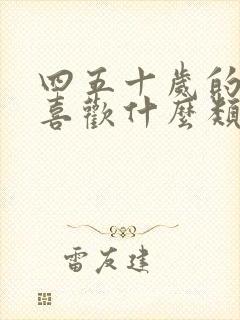 四五十歲的
喜歡什麼類
雷友建